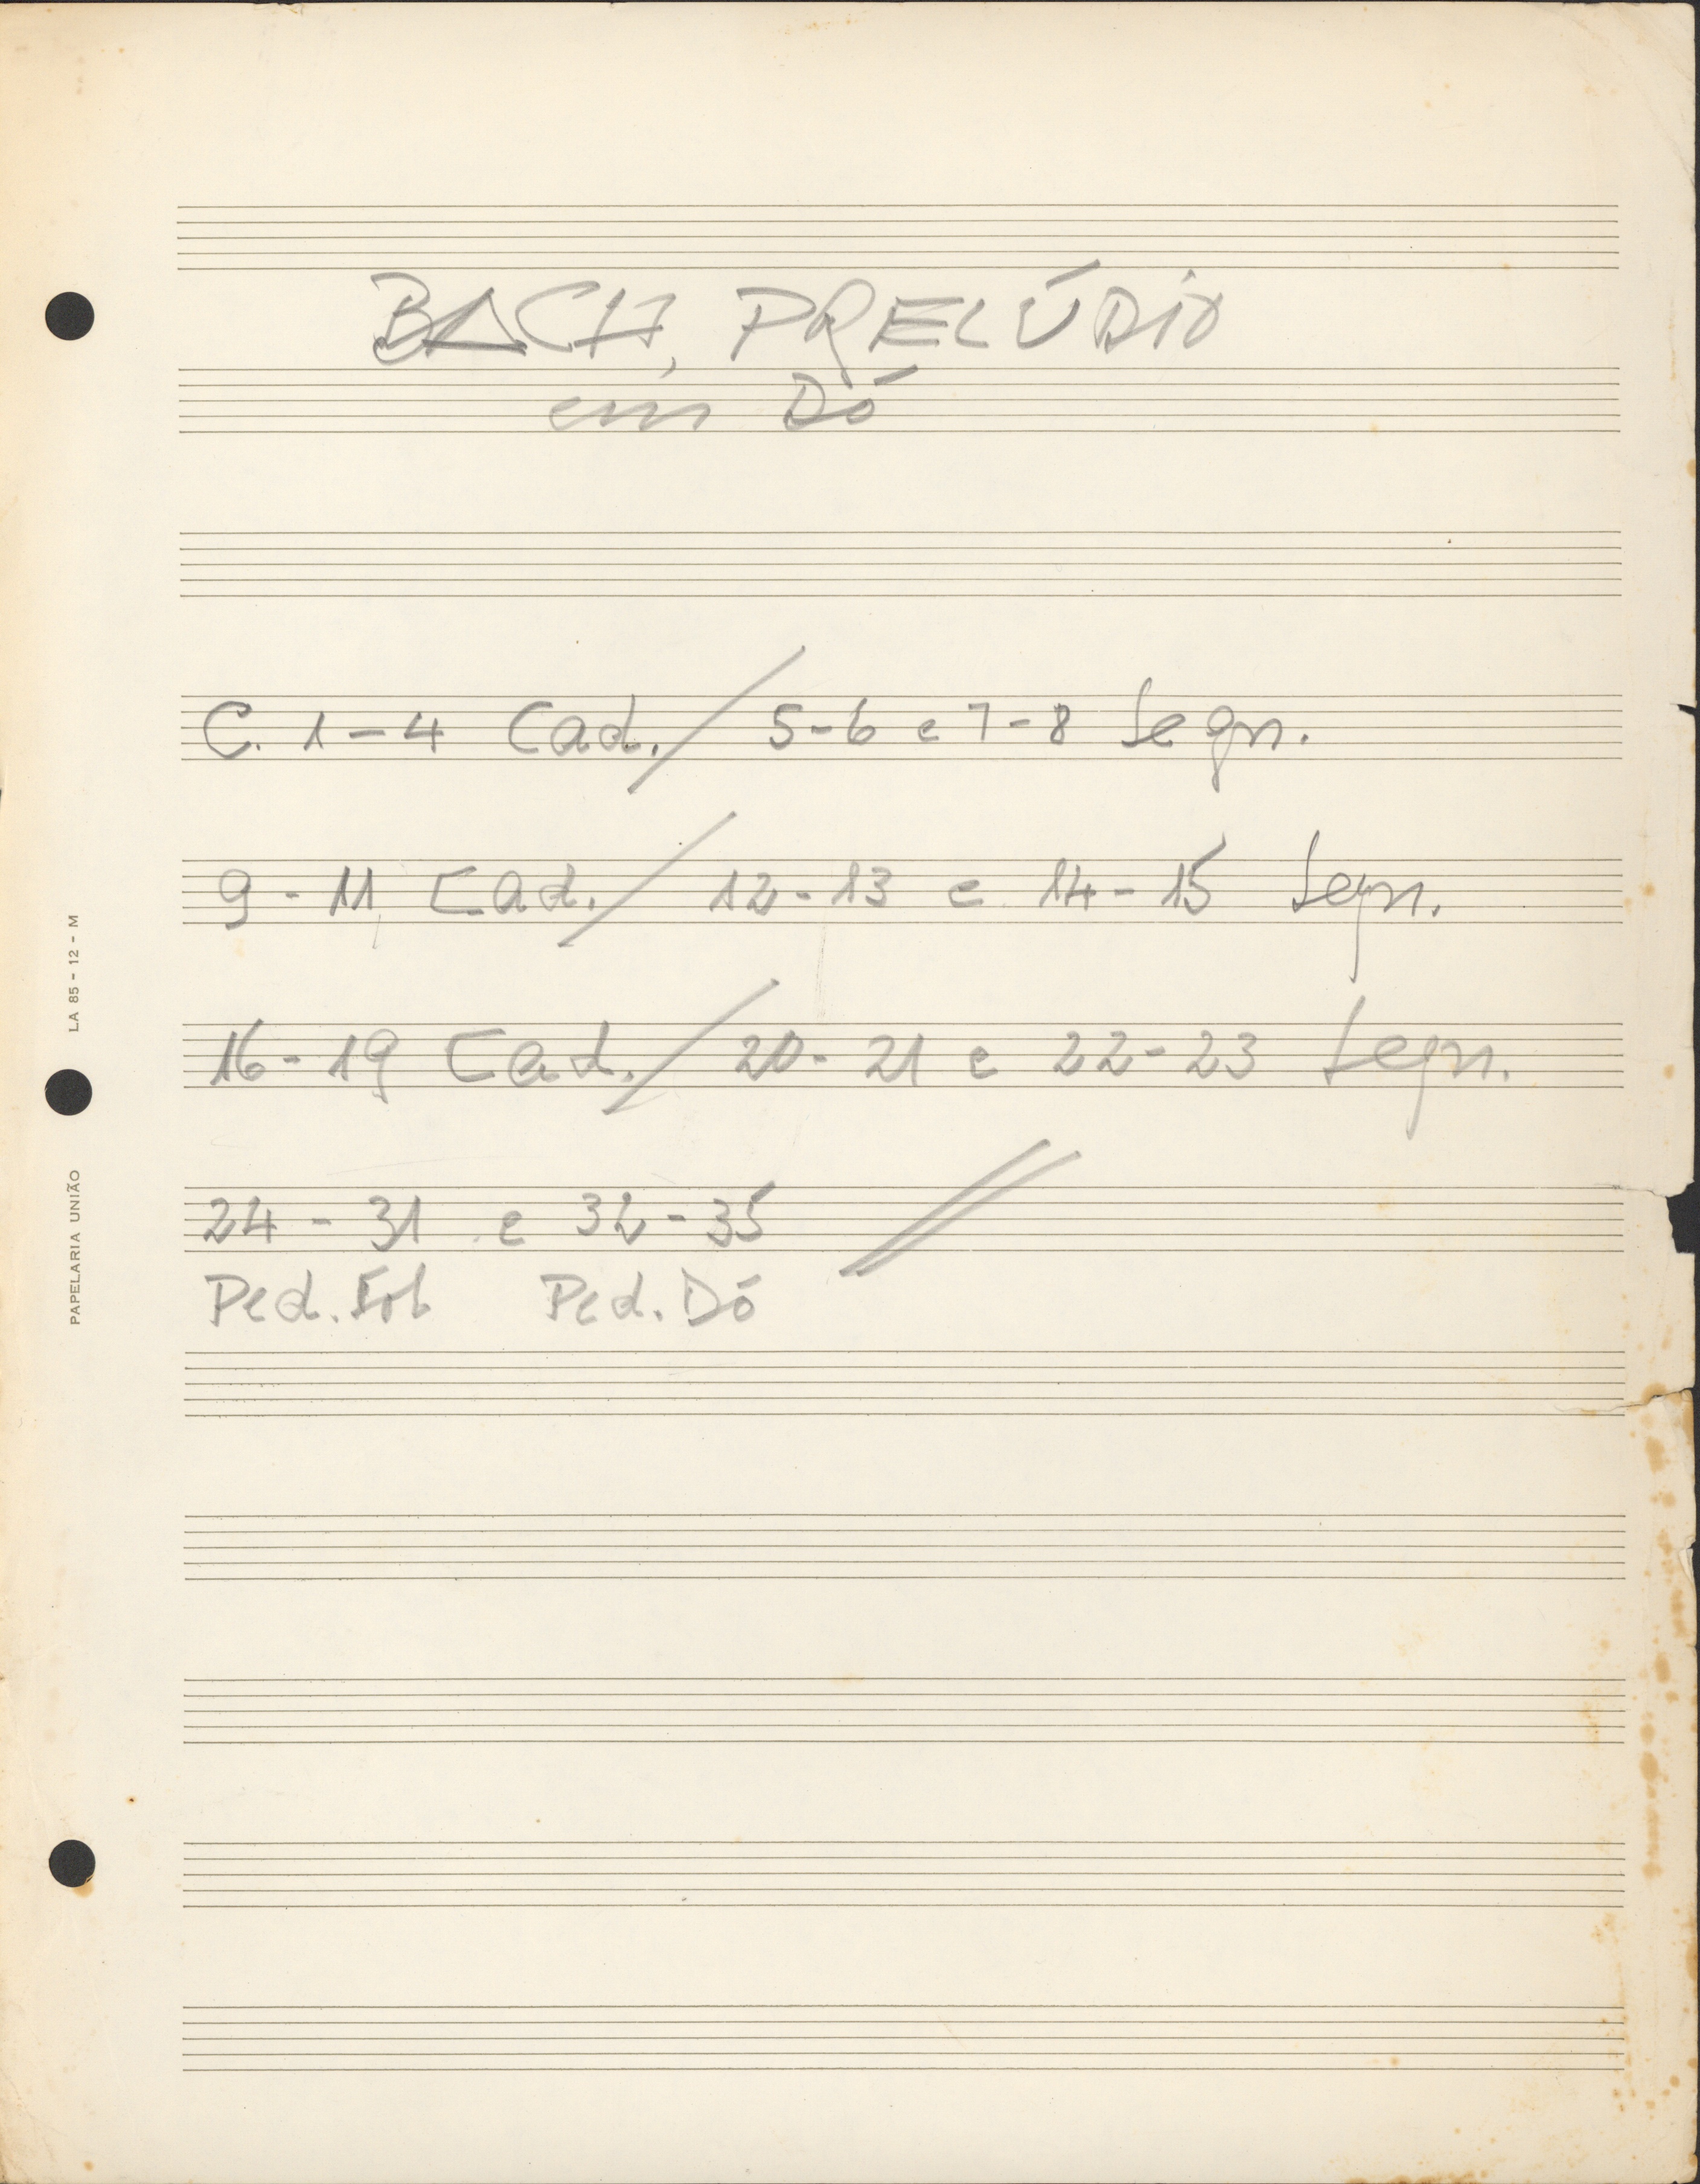 BACH, PRELÚDIO
em Dó
C. 1-4 Cad. / 5-6 e 7-8 Seqn.
9-11 Cad. / 12-13 e 14-15 Seqn.
16-19 Cad. / 20-21 e 22-23 Seqn.
24-31 e 32-35 //
Ped. Sol Ped. Dó
LA 85 - 12 - M
PAPELARIA UNIÃO